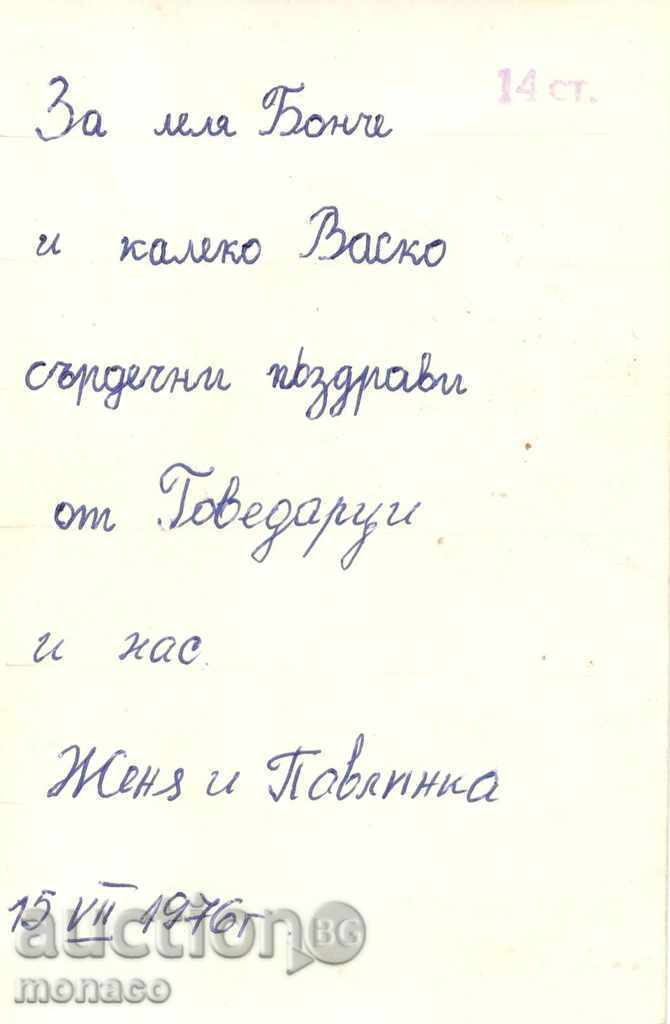 14 ст.
За леля Бонче
и калеко Васко
сърдечни поздрави
от Говедарци
и нас.
Женя и Павлинка
15 VII 1976г.
auction BG
monaco